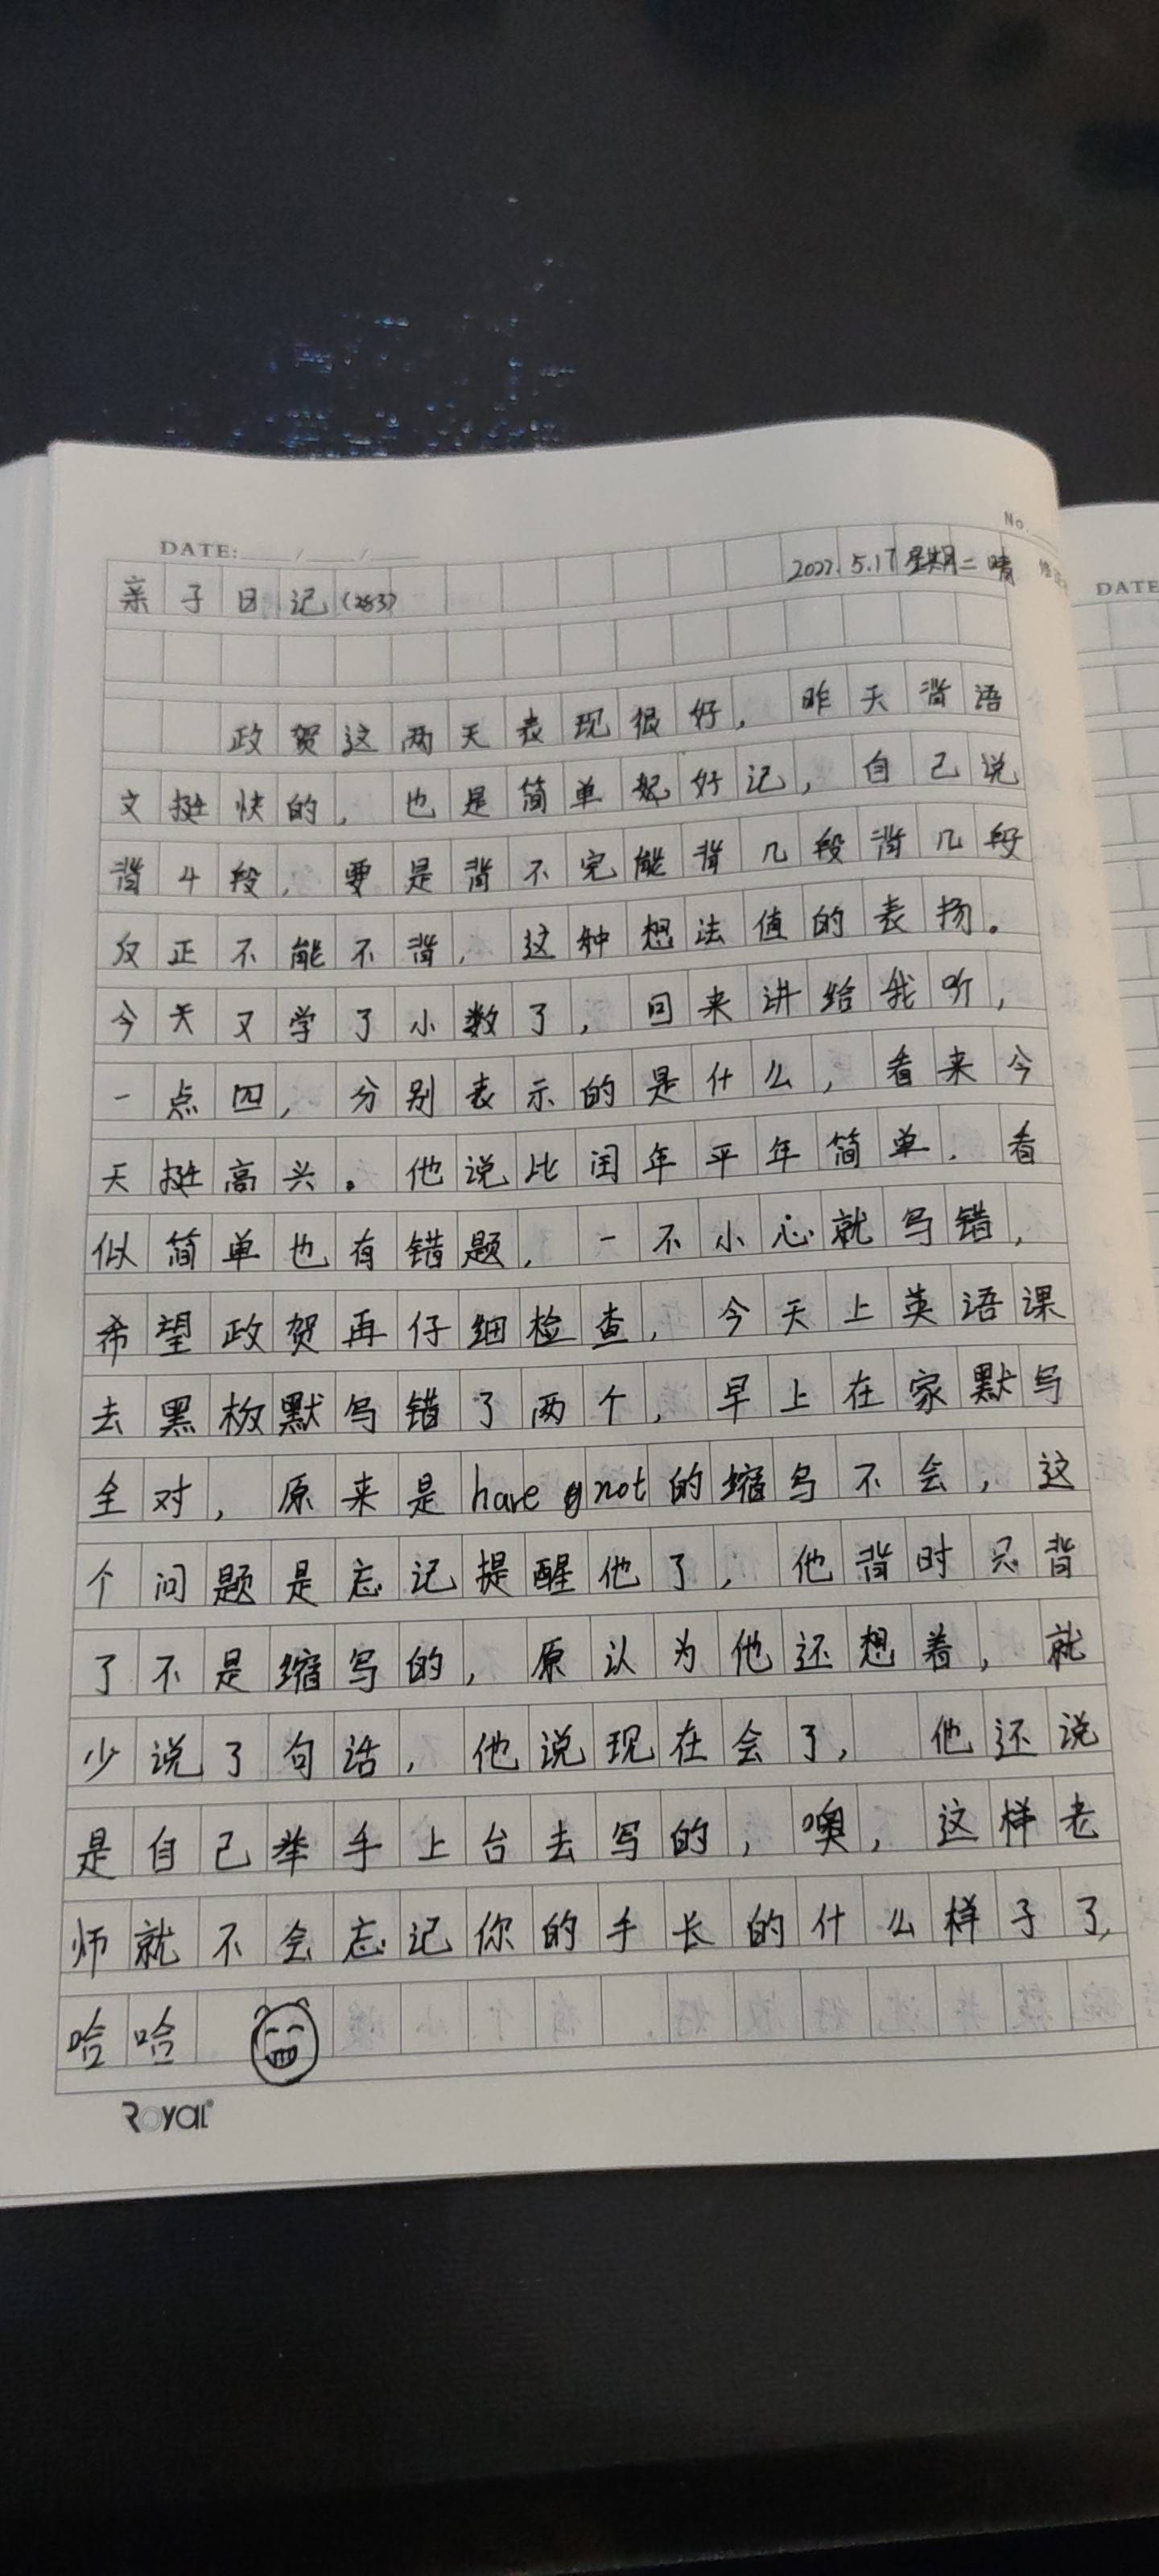 No.
DATE: / /
2022.5.17 星期二 晴
亲子日记(263)
政贺这两天表现很好,昨天背语
文挺快的,也是简单好记,自己说
背4段,要是背不完能背几段背几段
反正不能不背,这种想法值的表扬。
今天又学了小数了,回来讲给我听,
一点四,分别表示的是什么,看来今
天挺高兴。他说比闰年平年简单.看
似简单也有错题,一不小心就写错,
希望政贺再仔细检查,今天上英语课
去黑板默写错了两个,早上在家默写
全对,原来是have not的缩写不会,这
个问题是忘记提醒他了,他背时只背
了不是缩写的,原认为他还想着,就
少说了句话,他说现在会了,他还说
是自己举手上台去写的,噢,这样老
师就不会忘记你的手长的什么样子了,
哈哈
ROYAL
DATE